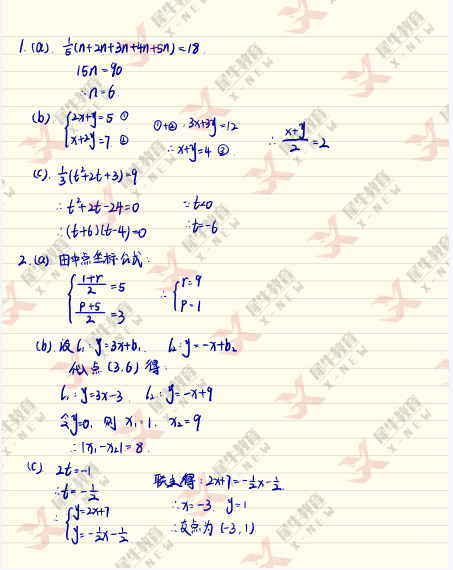 1. (a). 1/5(n+2n+3n+4n+5n)=18
15n=90
∴n=6
(b) {2x+y=5 ①
x+2y=7 ②
①+②: 3x+3y=12
∴x+y=4 ③
∴ (x+y)/2=2
(c). 1/3(t²+2t+3)=9
∴t²+2t-24=0
∴(t+6)(t-4)=0
∵t<0
∴t=-6
2.(a) 由中点坐标公式:
{(1+r)/2=5
(p+5)/2=3
∴{r=9
p=1
(b). 设l₁:y=3x+b₁. l₂:y=-x+b₂
代点(3,6)得:
l₁:y=3x-3. l₂:y=-x+9
令y=0, 则 x₁=1. x₂=9
∴|x₁-x₂|=8.
(c) 2t=-1
∴t=-1/2
∴{y=2x+7
y=-1/2x-1/2
联立得:2x+7=-1/2x-1/2.
∴x=-3. y=1
∴交点为(-3,1)
犀牛教育
X-NEW